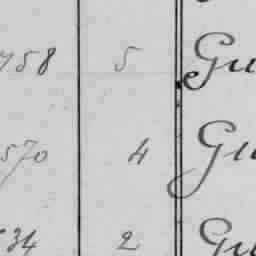 758 5 Gu
570 4 Gu
34 2 Gu